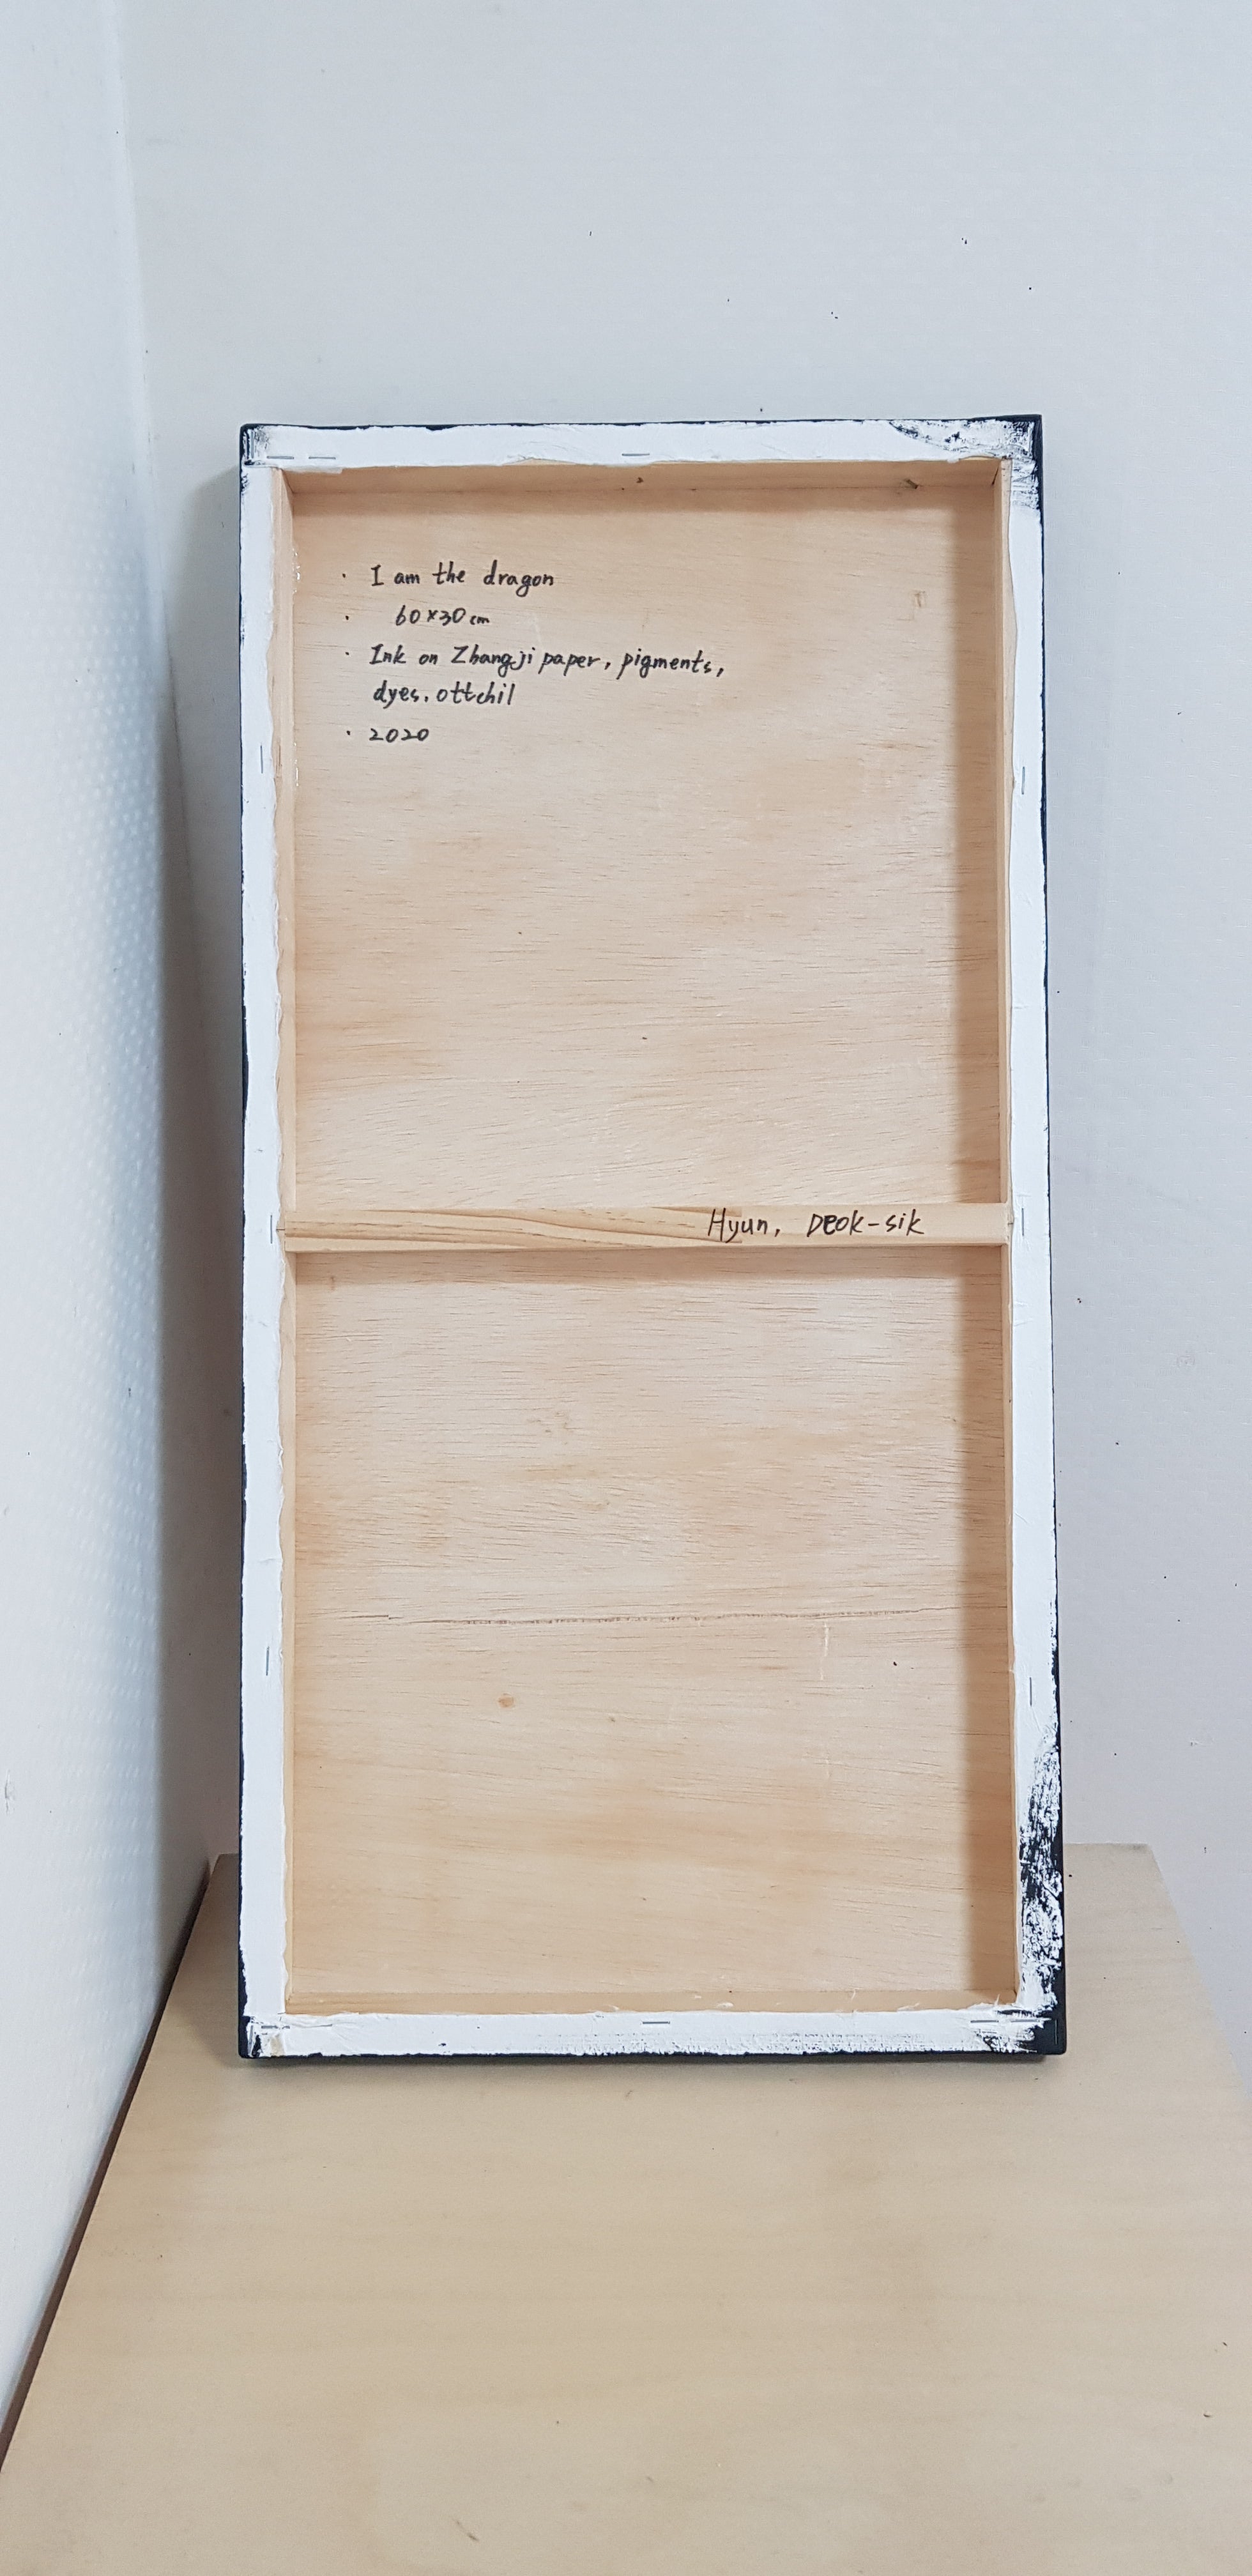 · I am the dragon
· 60×30cm
· Ink on Zhangji paper, pigments,
dyes, ottchil
· 2020
Hyun, Deok-sik